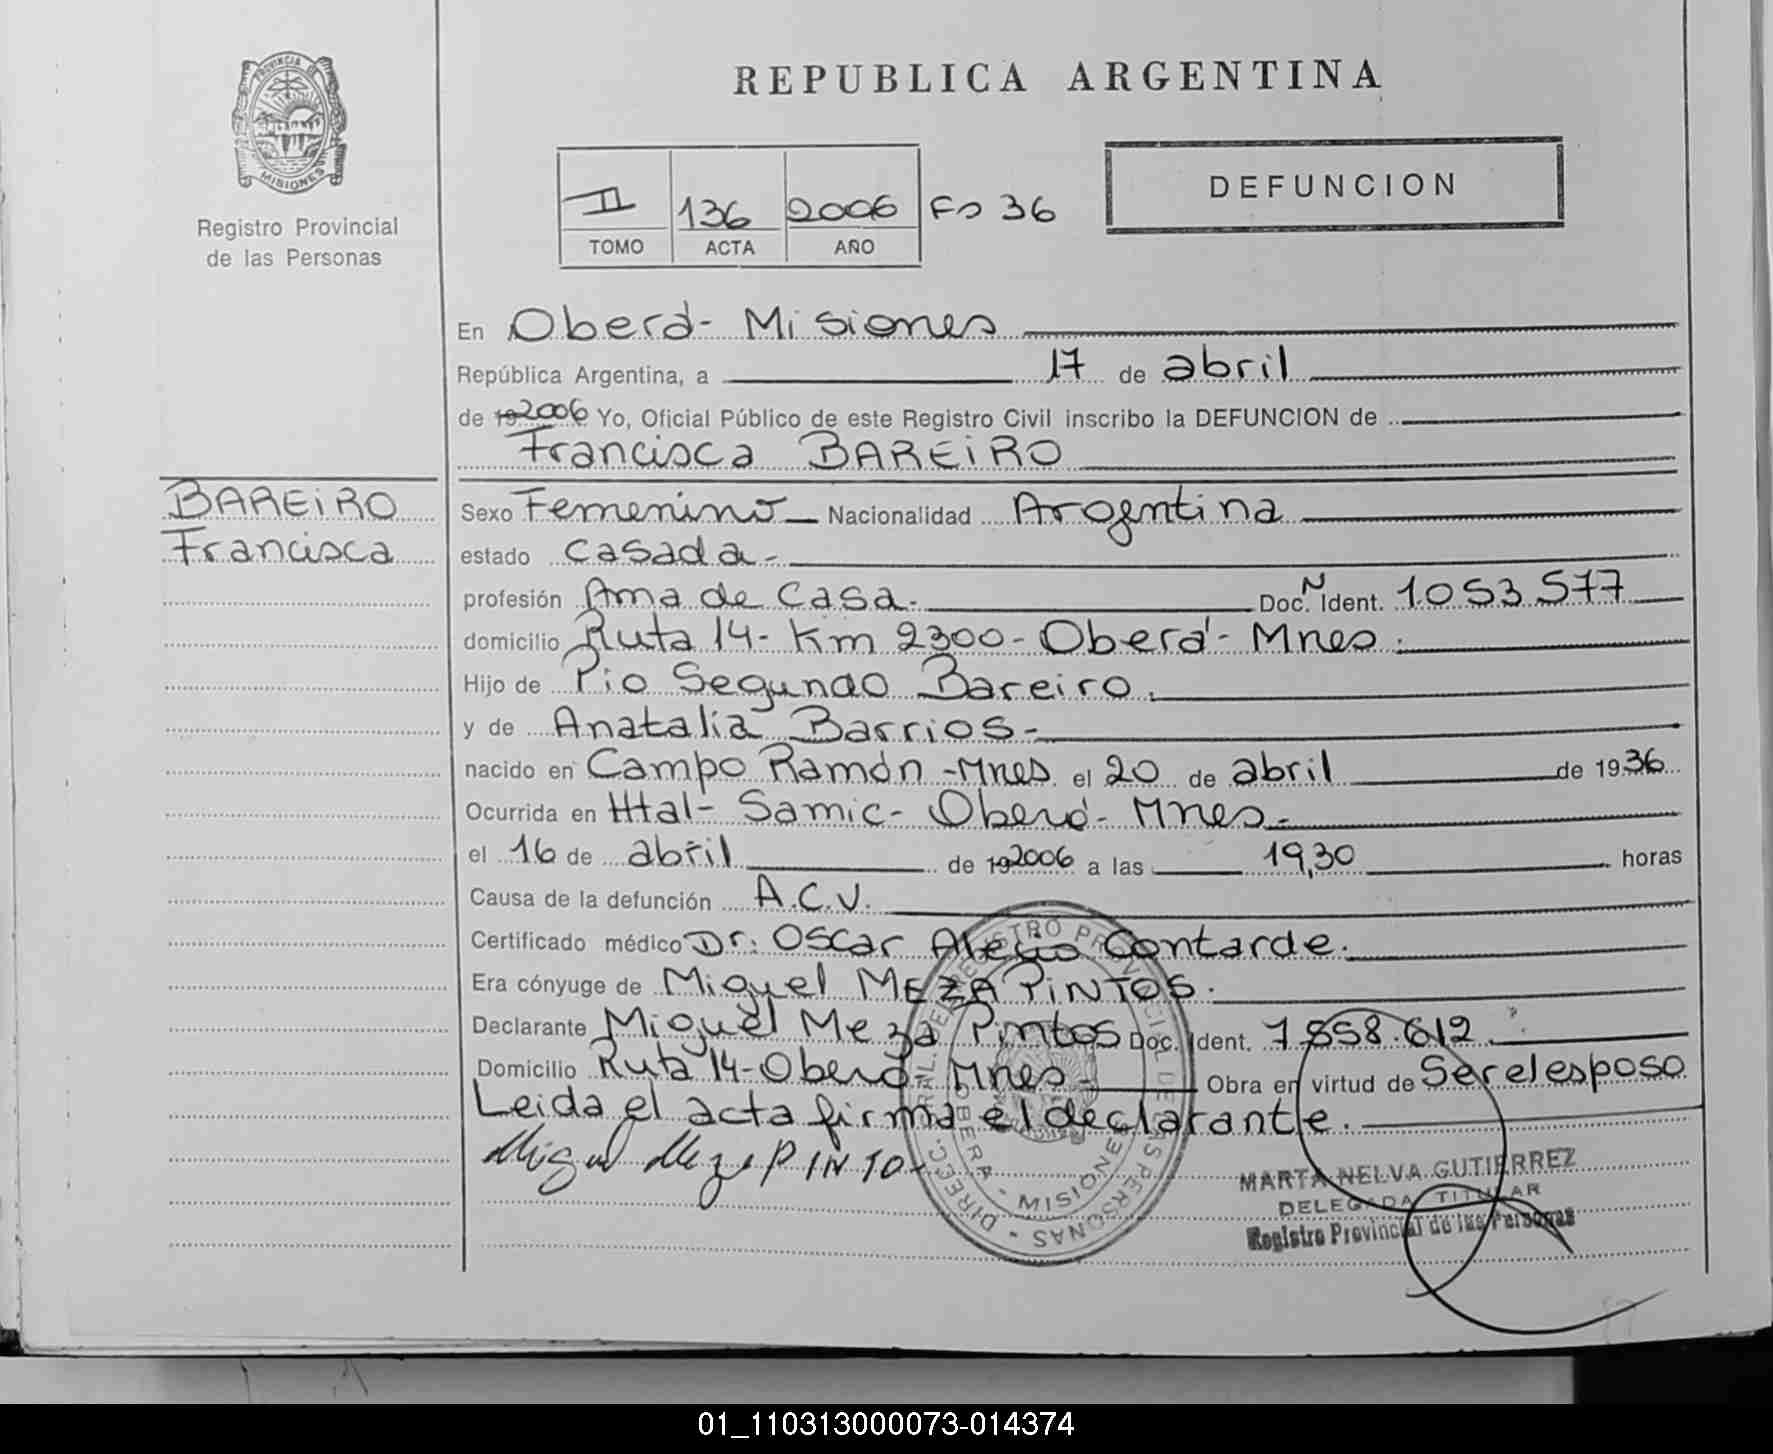 PROVINCIA DE
MISIONES
Registro Provincial
de las Personas
REPUBLICA ARGENTINA
II 136 2006 Fo 36
TOMO ACTA AÑO
DEFUNCION
En Oberá- Misiones
República Argentina, a 17 de abril
de 19 2006 Yo, Oficial Público de este Registro Civil inscribo la DEFUNCION de
Francisca BAREIRO
BAREIRO
Francisca
Sexo Femenino Nacionalidad Argentina
estado Casada-
profesión Ama de Casa. Doc. N Ident. 1.053.577
domicilio Ruta 14- Km 2300- Oberá- Mnes.
Hijo de Pio Segundo Bareiro.
y de Anatalia Barrios-
nacido en Campo Ramón -Mnes el 20 de abril de 1936
Ocurrida en Htal- Samic- Oberá- Mnes-
el 16 de abril de 19 2006 a las 19,30 horas
Causa de la defunción A.C.V.
Certificado médico Dr. Oscar Contarde.
Era cónyuge de Miguel MEZA PINTOS.
Declarante Miguel Meza Pintos Doc. Ident. 7.858.612
Domicilio Ruta 14-Oberá- Mnes- Obra en virtud de Ser el esposo
Leida el acta firma el declarante.
Miguel Meza PINTO
DIREC. GRAL. DEL REGISTRO PROVINCIAL DE LAS PERSONAS
OBERA - MISIONES
MARTA NELVA GUTIERREZ
DELEGADA TITULAR
Registro Provincial de las Personas
01_110313000073-014374